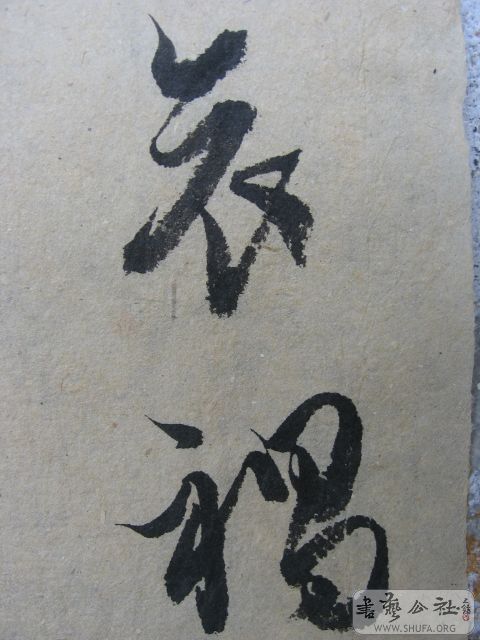 衣
褐
書藝公社
WWW.SHUFA.ORG